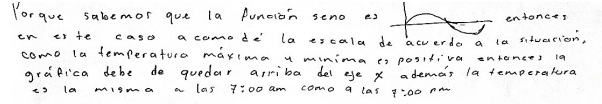 Porque sabemos que la función seno es entonces
en este caso acomodé la escala de acuerdo a la situación,
como la temperatura máxima y mínima es positiva entonces la
gráfica debe de quedar arriba del eje x además la temperatura
es la misma a las 7:00 am como a las 7:00 pm